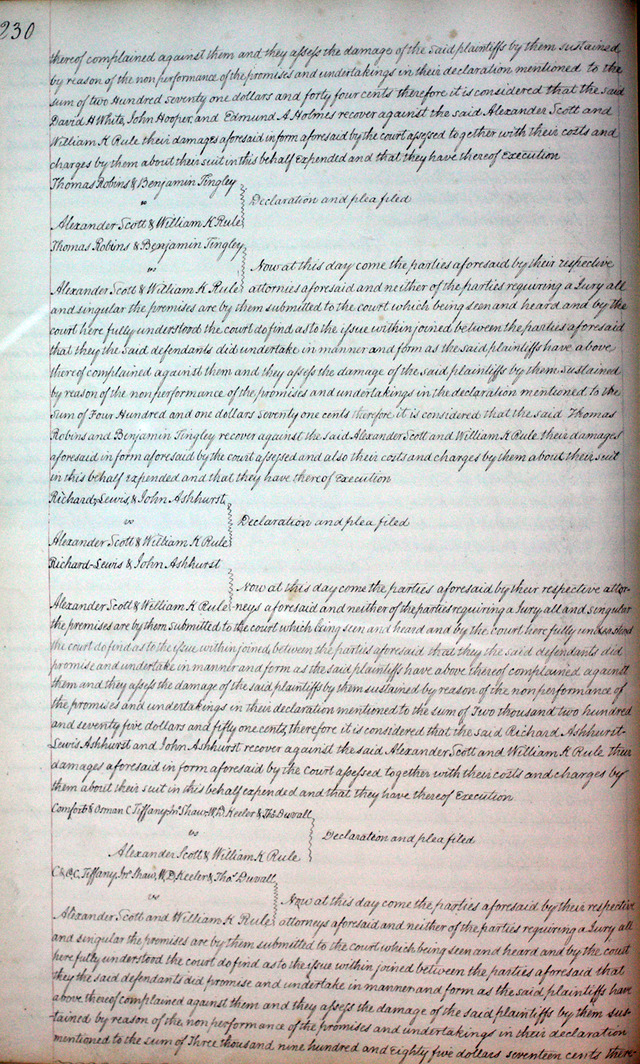 230
thereof complained against them and they assess the damage of the said plaintiffs by them sustained
by reason of the non performance of the promises and undertakings in their declaration mentioned to the
sum of two Hundred Seventy one dollars and forty four cents therefore it is considered that the said
David H White, John Hooper, and Edmund A Holmes recover against the said Alexander Scott and
William K Rule their damages aforesaid in form aforesaid by the court assessed together with their costs and
charges by them about their suit in this behalf expended and that they have thereof Execution
Thomas Robins & Benjamin Tingley
vs
Declaration and plea filed
Alexander Scott & William K Rule
Thomas Robins & Benjamin Tingley
vs
Now at this day come the parties aforesaid by their respective
Alexander Scott & William K Rule attornies aforesaid and neither of the parties requiring a Jury all
and singular the premises are by them submitted to the court which being seen and heard and by the
court here fully understood the court do find as to the issue within joined between the parties aforesaid
that they the said defendants did undertake in manner and form as the said plaintiffs have above
thereof complained against them and they assess the damage of the said plaintiffs by them sustained
by reason of the nonperformance of the promises and undertakings in the declaration mentioned to the
sum of Four Hundred and one dollars seventy one cents therefore it is considered that the said Thomas
Robins and Benjamin Tingley recover against the said Alexander Scott and William K Rule their damages
aforesaid in form aforesaid by the court assessed and also their costs and charges by them about their suit
in this behalf expended and that they have thereof Execution
Richard, Lewis, & John Ashhurst
vs
Declaration and plea filed
Alexander Scott & William K Rule
Richard Lewis & John Ashhurst
Now at this day come the parties aforesaid by their respective attor-
Alexander Scott & William K Rule neys aforesaid and neither of the parties requiring a Jury all and singular
the premises are by them submitted to the court which being seen and heard and by the court here fully understood
the court do find as to the issue within joined between the parties aforesaid that they the said defendants did
promise and undertake in manner and form as the said plaintiffs have above thereof complained against
them and they assess the damage of the said plaintiffs by them sustained by reason of the nonperformance of
the promises and undertakings in their declaration mentioned to the sum of Two thousand two hundred
and seventy five dollars and fifty one cents, therefore it is considered that the said Richard Ashhurst
Lewis Ashhurst and John Ashhurst recover against the said Alexander Scott and William K Rule their
damages aforesaid in form aforesaid by the court assessed together with their costs and charges by
them about their suit in this behalf expended and that they have thereof Execution
Comfort & Osman C Tiffany, Jno Shaw, W. D. Keeler & Thos Duvall
vs
Declaration and plea filed
Alexander Scott & William K Rule
C & O. C. Tiffany, Jno Shaw, W. D. Keeler & Thos Duvall
vs
Now at this day come the parties aforesaid by their respective
Alexander Scott and William K Rule attorneys aforesaid and neither of the parties requiring a Jury all
and singular the premises are by them submitted to the court which being seen and heard and by the court
here fully understood the court do find as to the issue within joined between the parties aforesaid that
they the said defendants did promise and undertake in manner and form as the said plaintiffs have
above thereof complained against them and they assess the damage of the said plaintiffs by them sus-
tained by reason of the nonperformance of the promises and undertakings in their declaration
mentioned to the sum of Three thousand nine hundred and Eighty five dollars seventeen cents there